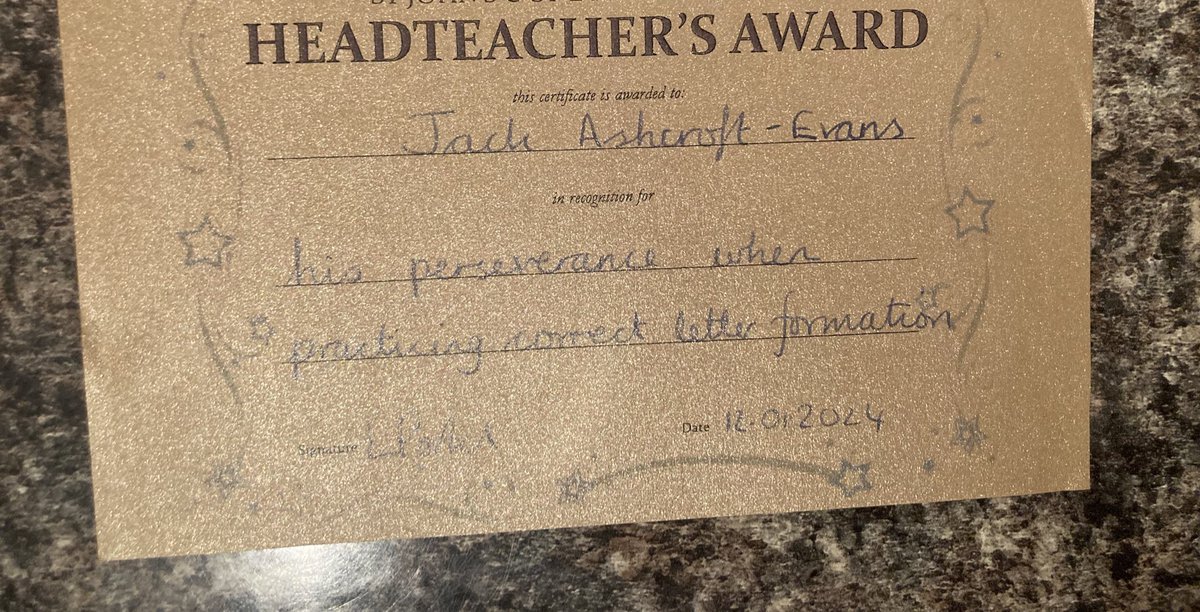 HEADTEACHER'S AWARD
this certificate is awarded to:
Jack Ashcroft-Evans
in recognition for
his perseverance when
practicing correct letter formation
Signature
Date 12.01.2024